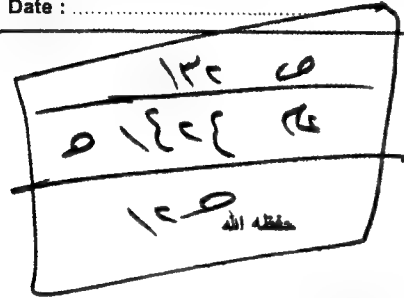 Date : ........................................
ص ١٣٢
عام ١٤٢٤ ه
ص ١٢
حفظه الله